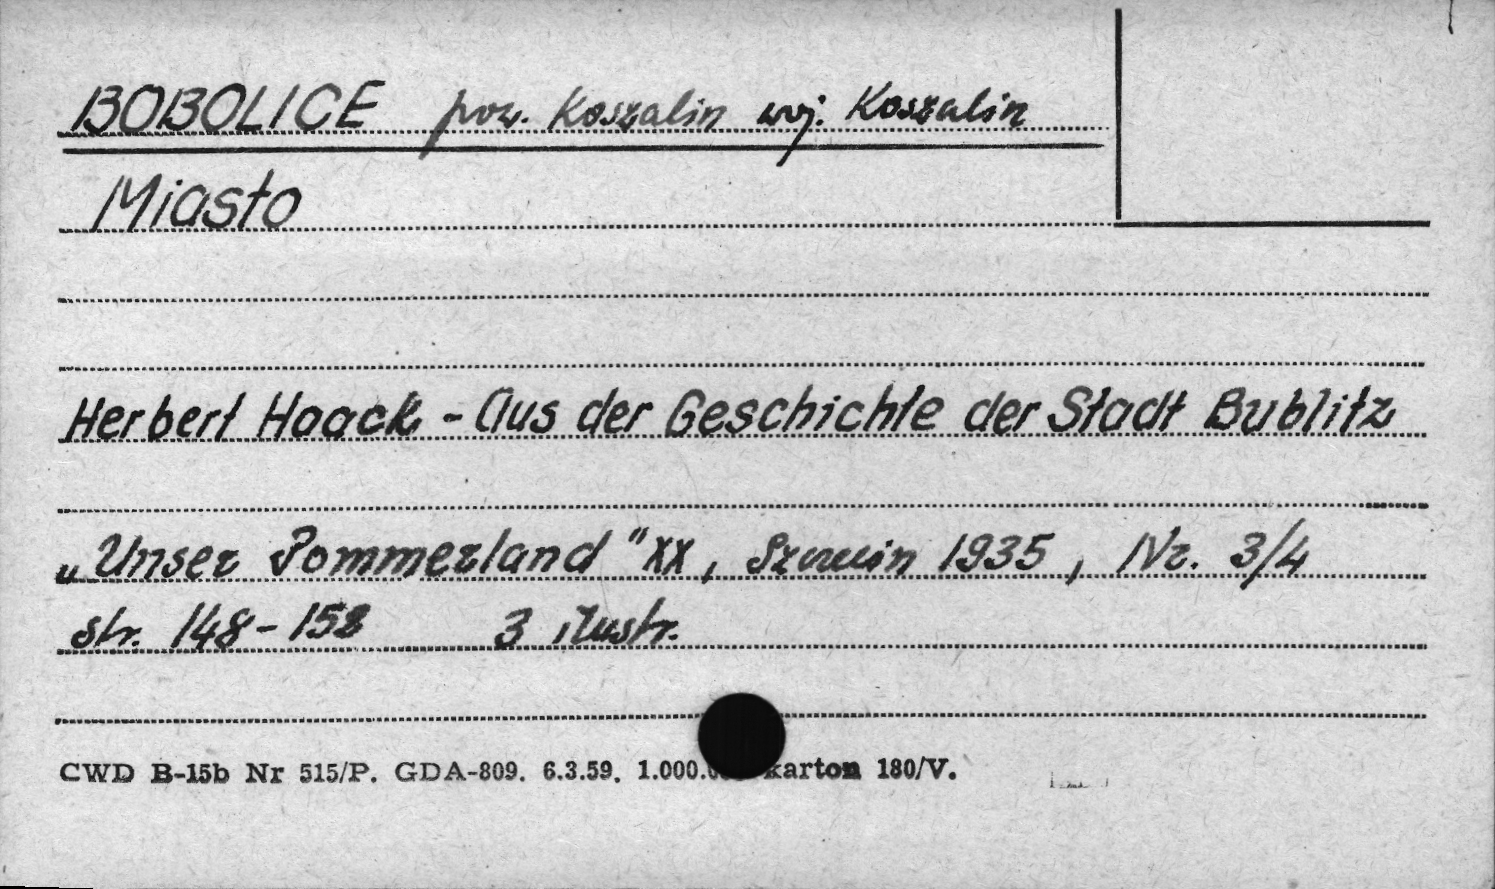 BOBOLICE pow. Koszalin woj. Koszalin
Miasto
Herbert Haack - Aus der Geschichte der Stadt Bublitz
„Unser Pommerland" XX, Szczecin 1935, Nr. 3/4
str. 148-158 3 ilustr.
CWD B-15b Nr 515/P. GDA-809. 6.3.59. 1.000. karton 180/V.